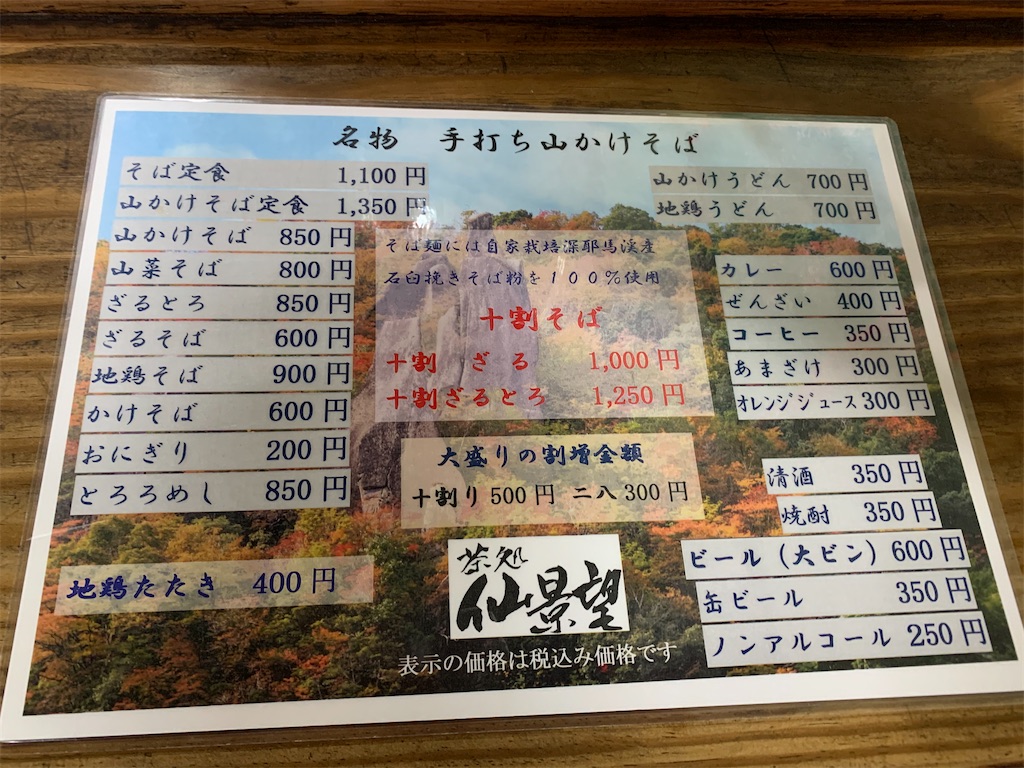 名物 手打ち山かけそば
そば定食 1,100 円
山かけそば定食 1,350 円
山かけそば 850 円
山菜そば 800 円
ざるとろ 850 円
ざるそば 600 円
地鶏そば 900 円
かけそば 600 円
おにぎり 200 円
とろろめし 850 円
地鶏たたき 400 円
そば麺には自家栽培深耶馬渓産
石臼挽きそば粉を１００％使用
十割そば
十割 ざる 1,000 円
十割ざるとろ 1,250 円
大盛りの割増金額
十割り 500 円 二八 300 円
茶処
仙景望
表示の価格は税込み価格です
山かけうどん 700 円
地鶏うどん 700 円
カレー 600 円
ぜんざい 400 円
コーヒー 350 円
あまざけ 300 円
オレンジジュース 300 円
清酒 350 円
焼酎 350 円
ビール（大ビン）600 円
缶ビール 350 円
ノンアルコール 250 円